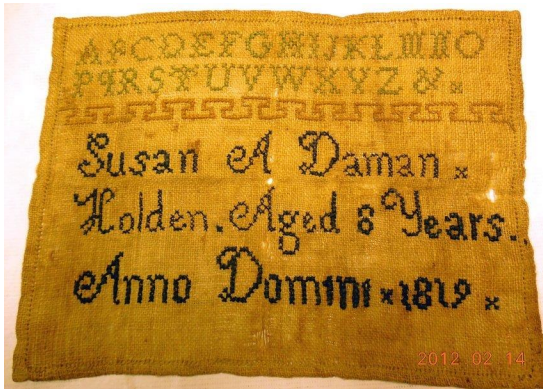 ABCDEFGHIJKLMNO
PQRSTUVWXYZ&
Susan A Daman
Holden. Aged 8 Years..
Anno Domini 1819
2012 02 14